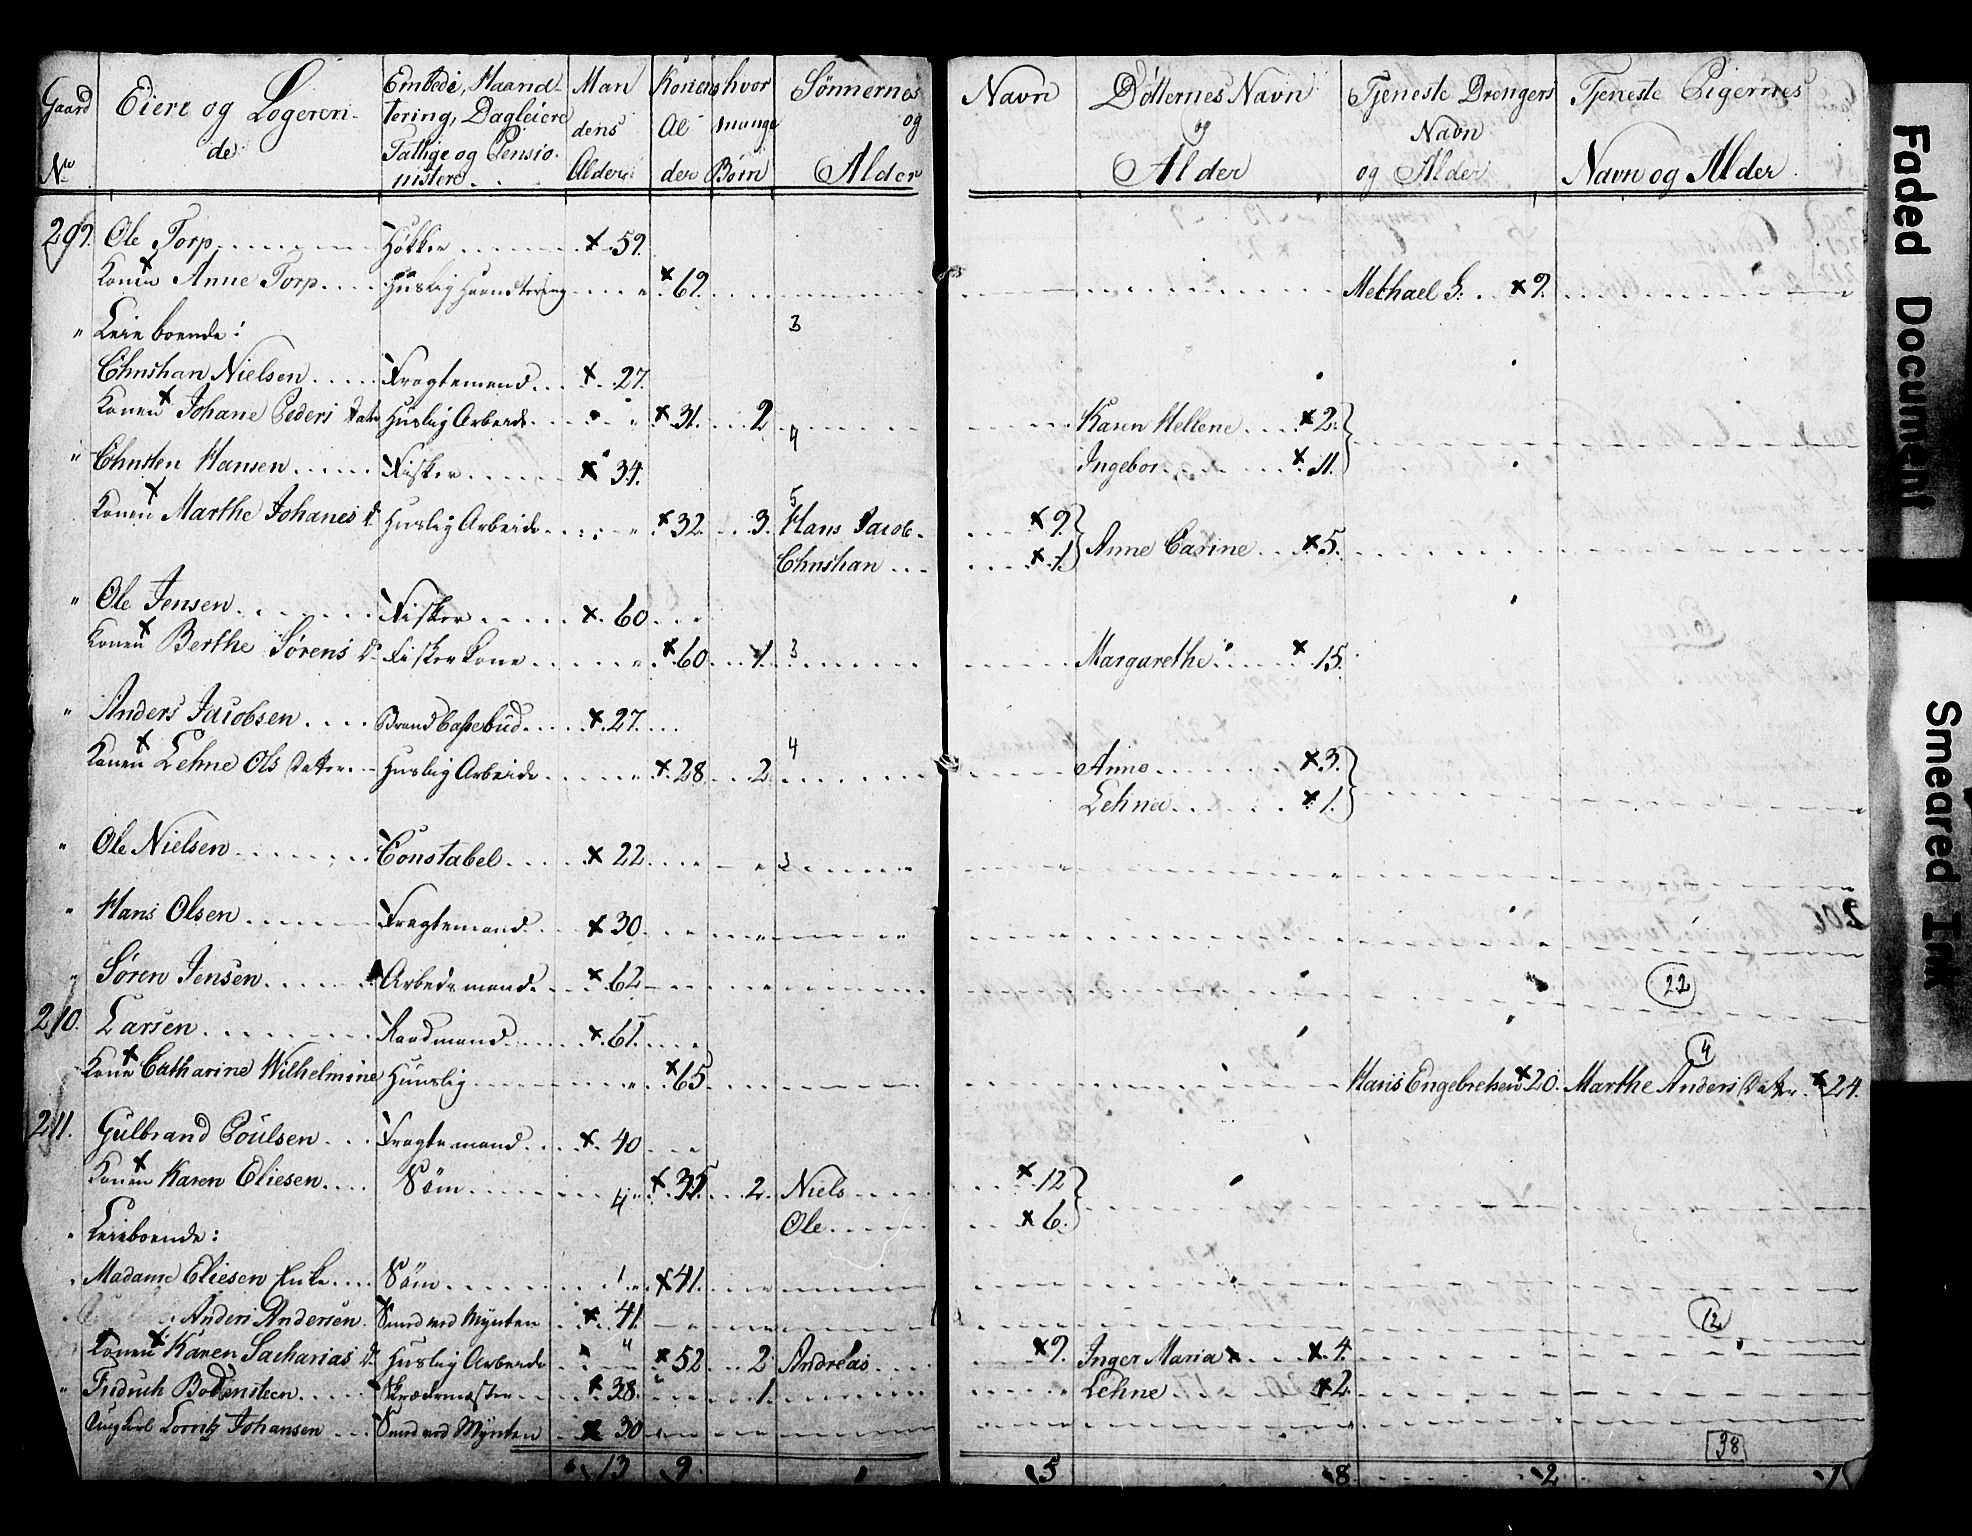 Gaard No | Eiere og Logerende | Embede, Haandtering, Dagleiere Fattige og Pensionistere. | Mandens Alder | Konens Alder | hvor mange Børn | Sønnernes og Alder | Navn | Døtternes Navn og Alder | Tjeneste Drengers Navn og Alder | Tjeneste Pigernes Navn og Alder.
209. Ole Torp Høkker 59.
Konen Anne Torp Huslig Haandtering " 69. Methael S: 9.
" Leieboende: 3
Christian Nielsen Fragtemand 27.
Konen Johane Peders Datr Huslig Arbeide " 31. 2 Karen Hellene 2.
4
" Christen Hansen Fisker 34. Ingebor 11.
Konen Marthe Johanes D Huslig Arbeide " 32. 3. 5 Hans Jacob 9. Anne Carine 5.
Christian 1.
" Ole Jensen Fisker 60
Konen Berthe Sørens D Fiskerkone " 60 1. 3 Margarethe 15.
" Anders Jacobsen Brandkassebud 27.
Konen Lehne Ols Datter Huslig Arbeide " 28 2. 4 Anne 3.
Lehna 1.
" Ole Nielsen Constabel 22 3
" Hans Olsen Fragtemand 30
" Søren Jensen Arbedsmand 62
22
210. Larsen Raadmand 61.
4
Kone Catharine Wilhelmine Huuslig " 65 Hans Engebretsen 20. Marthe Anders Datter 24.
211. Gulbrand Poulsen Fragtemand 40
Konen Karen Eliesen Søm 4 " 35. 2. Niels 12
Ole 6.
" Leieboende:
" Madame Eliesen Enke Søm 1 " 41.
Anders Andersen Smed ved Mynten 41. 12
Konen Karen Sacharias D Huslig Arbeide 52 2 Andreas 9. Inger Maria 4.
" Fridrich Bodensteen Skrædermester 38. 1. Lehne 2.
Ungkarl Lorntz Johansen Smed ved Mynten 30
38
13 9 5 8 2 1
Faded Document
Smeared Ink